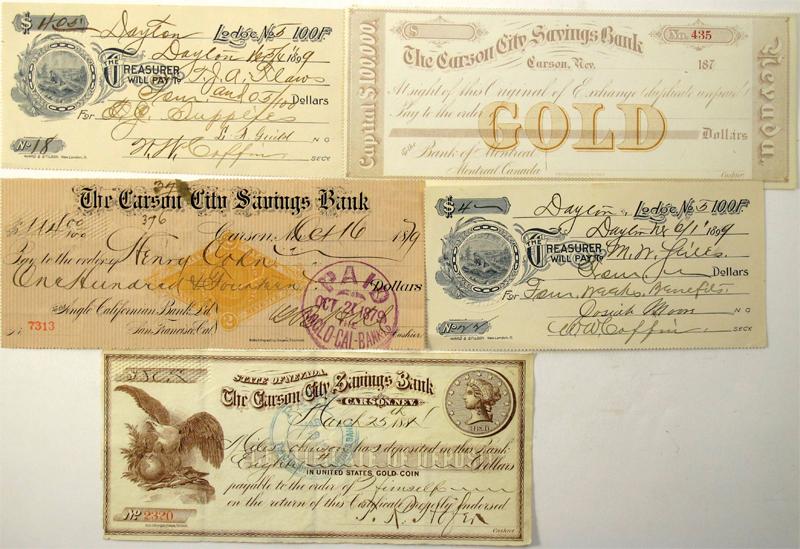 $ 4.05 Dayton Lodge, No. 5 I.O.O.F.
Dayton
THE TREASURER
WILL PAY TO
Four and 05/100 Dollars
For Supplies
No 18
W. W. Coffin SECY
The Carson City Savings Bank
No. 435
Carson, Nev. 187
At sight of this Original of Exchange (duplicate unpaid)
Pay to the order
GOLD
Dollars
To the Bank of Montreal
Montreal Canada
Cashier.
Capital $100,000.
Nevada.
The Carson City Savings Bank
376
$114 00/100 Carson, Nev. Oct 16 1879
Pay to the order of Henry Cohn
One Hundred & Fourteen Dollars
To the Anglo Californian Bank Ld
San Francisco, Cal.
No. 7313
Cashier.
PAID
OCT 21 1879
THE
ANGLO-CAL-BANK
$ 4 Dayton Lodge, No. 5 I.O.O.F.
Dayton
THE TREASURER
WILL PAY TO
Four Dollars
For Four Weeks Benefits
Josiah Moon N G
W. W. Coffin SECY
STATE OF NEVADA.
The Carson City Savings Bank
CARSON, NEV.
March 25th
has deposited in this Bank
Eighty Dollars
IN UNITED STATES GOLD COIN
payable to the order of Himself
on the return of this Certificate Properly Endorsed
No 2320
Cashier